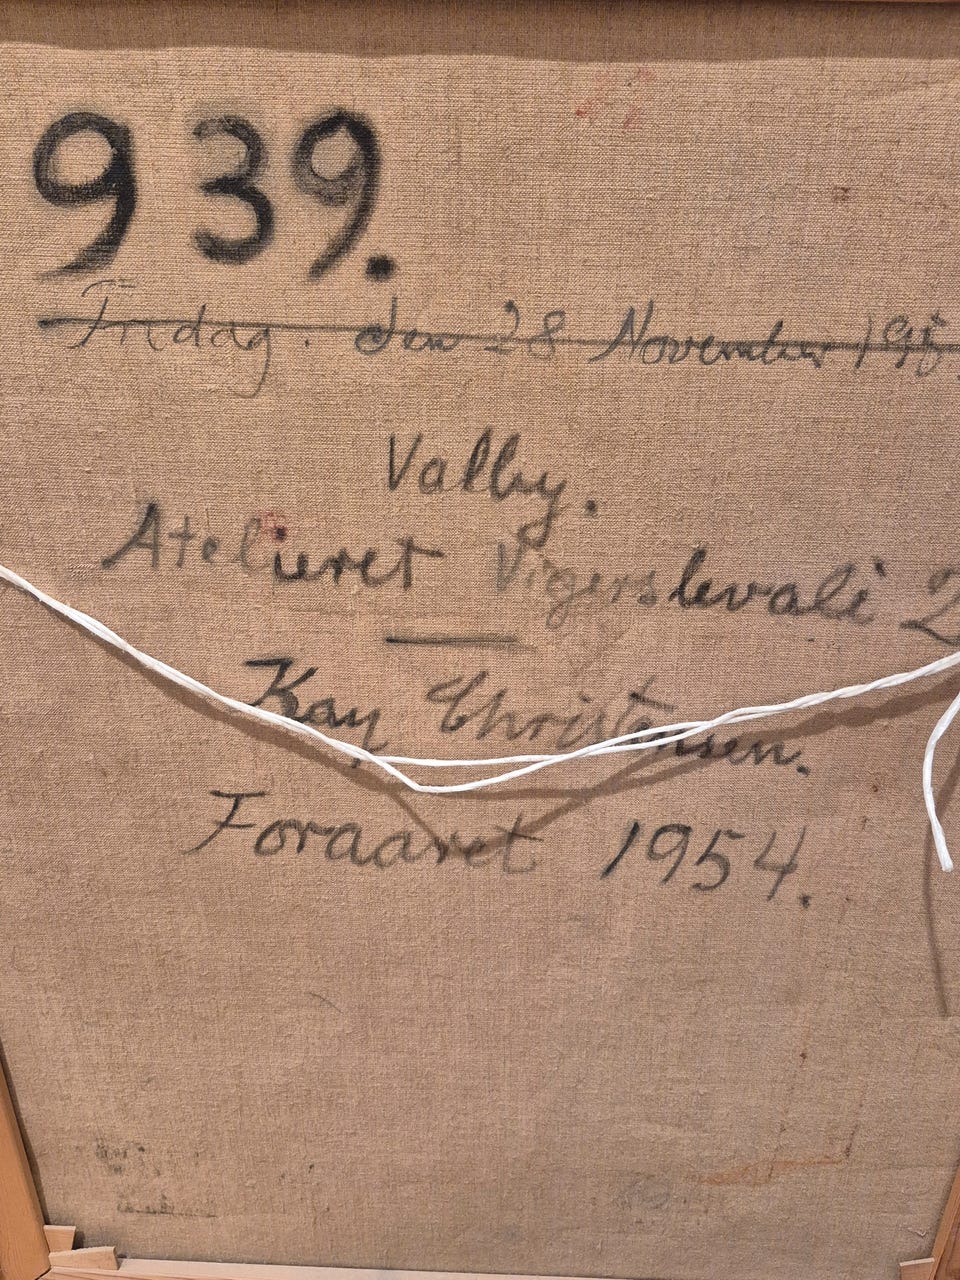 939.
Fredag. den 28 November 195
Valby.
Atelieret Vigerslevalé 2
Kay Christensen.
Foraaret 1954.